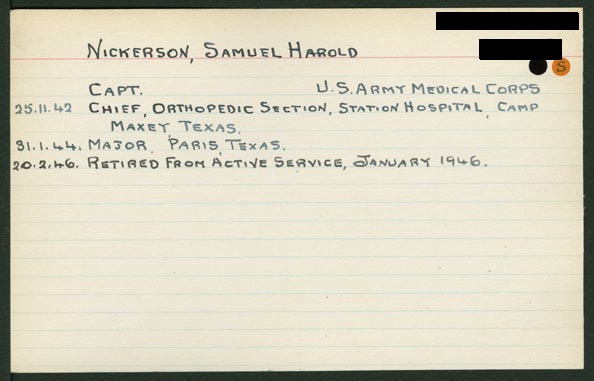 NICKERSON, SAMUEL HAROLD
S
CAPT. U.S. ARMY MEDICAL CORPS
25.11.42 CHIEF, ORTHOPEDIC SECTION, STATION HOSPITAL, CAMP
MAXEY, TEXAS.
31.1.44. MAJOR, PARIS, TEXAS.
20.2.46. RETIRED FROM ACTIVE SERVICE, JANUARY 1946.